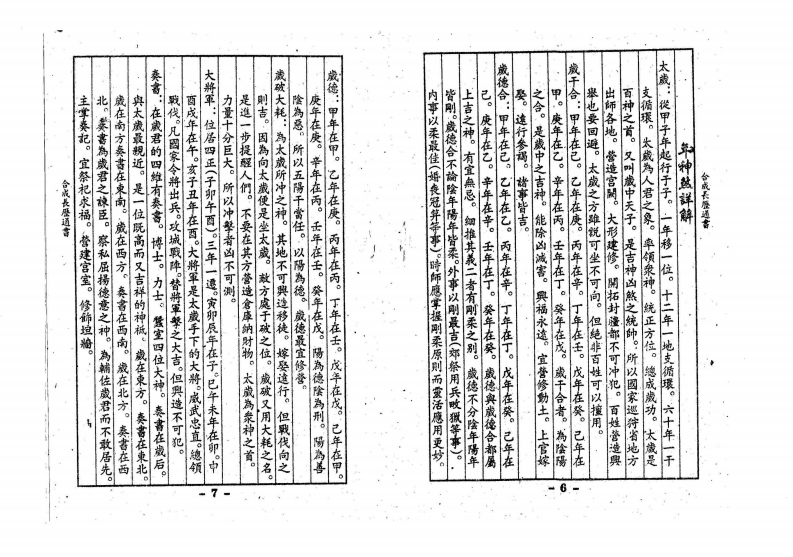 合成長曆通書
年神煞詳解
太歲：從甲子年起行于子。一年移一位。十二年一地支循環。六十年一干
支循環。太歲為人君之象。率領衆神。統正方位。總成歲功。太歲是
百神之首。又叫歲中天子。是吉神凶煞之統帥。所以國家巡狩省地方
出師各地。營造宮闕。大形建修。開拓封疆都不可冲犯。百姓營造興
舉也要回避。太歲之方雖說可坐不可向。但絕非百姓可以擅用。
歲干合：甲年在己。乙年在庚。丙年在辛。丁年在壬。戊年在癸。己年在
甲。庚年在乙。辛年在丙。壬年在丁。癸年在戊。歲干合者。為陰陽
之合。是歲中之吉神。能除凶滅害。興福永遠。宜營修動土。上官嫁
娶。遠行參謁。諸事皆吉。
歲德合：甲年在己。乙年在乙。丙年在辛。丁年在丁。戊年在癸。己年在
己。庚年在乙。辛年在辛。壬年在丁。癸年在癸。歲德與歲德合都屬
上吉之神。有宜無忌。細推其義二者有剛柔之別。歲德不分陰年陽年
皆剛。歲德合不論陰年陽年皆柔。外事以剛最吉（郊祭用兵畋獵等事）。
内事以柔最佳（婚喪冠笄等事）。時師應掌握剛柔原則而靈活應用更妙。
- 6 -
歲德：甲年在甲。乙年在庚。丙年在丙。丁年在壬。戊年在戊。己年在甲。
庚年在庚。辛年在丙。壬年在壬。癸年在戊。陽為德陰為刑。陽為善
陰為惡。所以五陽干當任。以陽為德。歲德最宜修營。
歲破大耗：為太歲所冲之神。其地不可興造移徒。嫁娶遠行。但戰伐向之
則吉。因為向太歲便是坐太歲。敵方處于破之位。歲破又用大耗之名。
是進一步提醒人們。不要在其方營造倉庫納財物。太歲為衆神之首。
力量十分巨大。所以冲擊者凶不可測。
大將軍：位居四正（子卯午酉）。三年一遷。寅卯辰年在子。巳午未年在卯。申
酉戌年在午。亥子丑年在酉。大將軍是太歲手下的大將。威武忠直。總領
戰伐。凡國家令將出兵。攻城戰陣。替將軍擊之大吉。但興造不可犯。
奏書：在歲君的四維有奏書。博士。力士。蠶室四位大神。奏書在歲后。
與太歲最親近。是一位既高而又吉祥的神祗。歲在東方。奏書在東北。
歲在南方奏書在東南。歲在西方。奏書在西南。歲在北方。奏書在西
北。奏書為歲君之諫臣。察私屈揚德意之神。為輔佐歲君而不敢居先。
主掌奏記。宜祭祀求福。營建宮室。修飾垣牆。
合成長曆通書
- 7 -